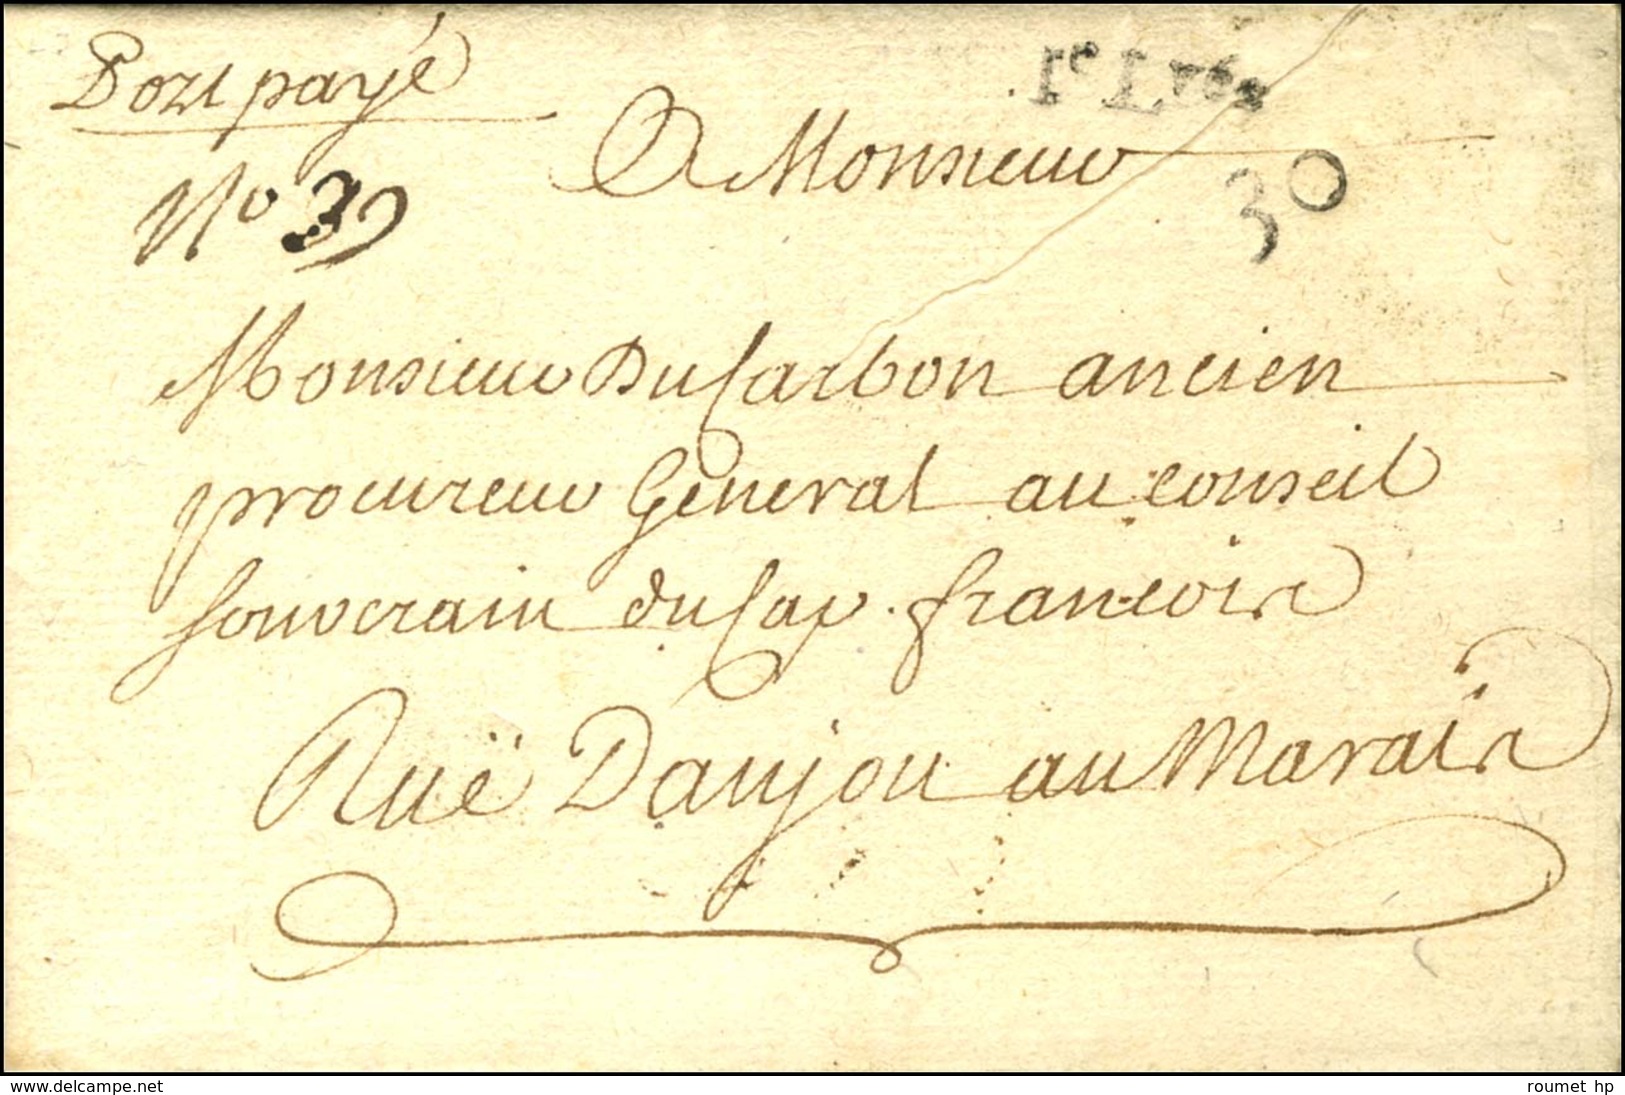 Port payé
1e Lrée
A Monsieur
No 39
30
Monsieur DuCarbon ancien
procureur Géneral au conseil
Souverain du Cap francois
Ruë Danjou au Marais
www.delcampe.net
roumet hp